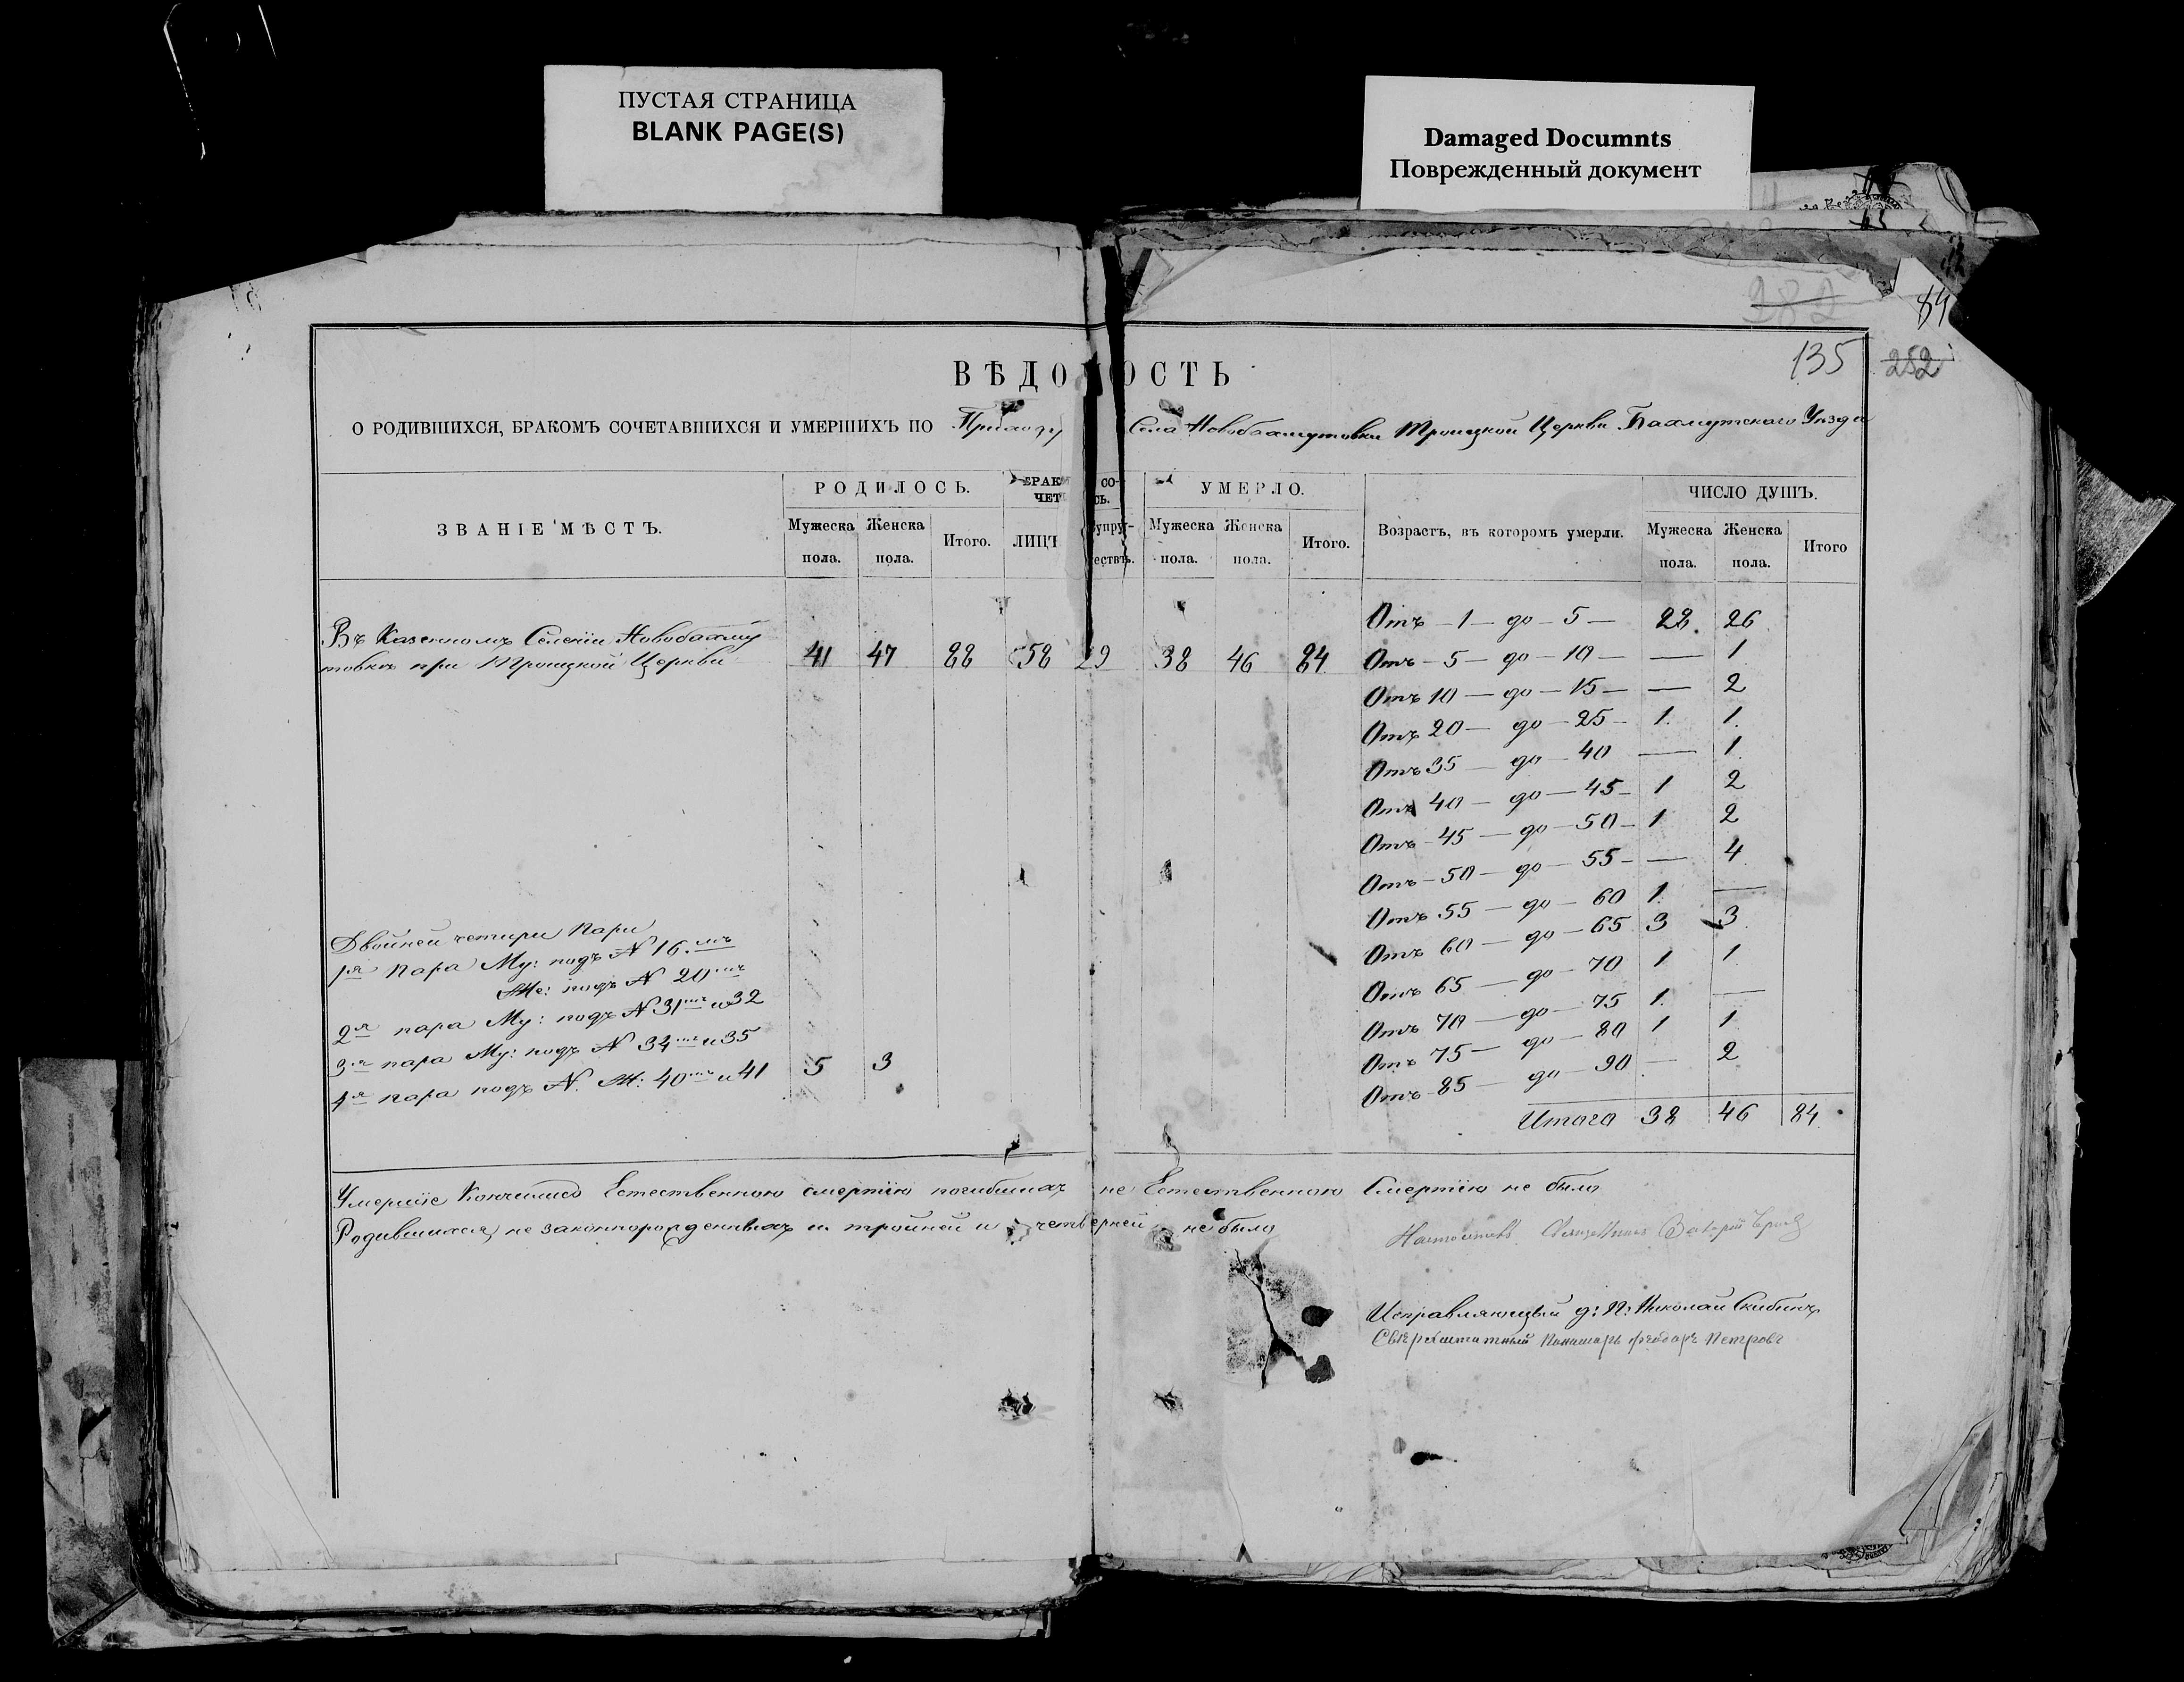 ПУСТАЯ СТРАНИЦА
BLANK PAGE(S)
Damaged Documnts
Поврежденный документ
282
84
135
252
ВѢДОМОСТЬ
О РОДИВШИХСЯ, БРАКОМЪ СОЧЕТАВШИХСЯ И УМЕРШИХЪ ПО Приходу Села Новобахмутовки Троицкой Церкви Бахмутскаго Уезда
ЗВАНІЕ МѢСТЪ. РОДИЛОСЬ. БРАК СО- ЧЕТ СЬ. УМЕРЛО. Возрастъ, въ которомъ умерли. ЧИСЛО ДУШЪ.
Мужеска пола. Женска пола. Итого. ЛИЦЪ Супру-ествъ. Мужеска пола. Женска пола. Итого. Мужеска пола. Женска пола. Итого
Въ Казенномъ Селеніи Новобахму
товки при Троицкой Церкви 41 47 88 58 29 38 46 84
Отъ 1 до 5 28 26
Отъ 5 до 10 — 1
Отъ 10 до 15 — 2
Отъ 20 до 25 1 1
Отъ 35 до 40 — 1
Отъ 40 до 45 1 2
Отъ 45 до 50 1 2
Отъ 50 до 55 — 4
Отъ 55 до 60 1 —
Отъ 60 до 65 3 3
Отъ 65 до 70 1 1
Отъ 70 до 75 1 —
Отъ 75 до 80 1 1
Отъ 85 до 90 — 2
Итого 38 46 84
Двойней четыри пари
1я пара Му: подъ N 16мъ
Же: подъ N 20мъ
2я пара Му: подъ N 31мъ и 32
3я пара Му: подъ N 34мъ и 35
4я пара подъ N. Ж: 40мъ и 41 5 3
Умершіе Кончились Естественною смертію погибшихъ не Естественною Смертію не было
Родившихся не законнорожденныхъ и тройней и четверней не было
Исправляющый д: П: Николай Скибинъ
Сверхштатный Пономарь Феодоръ Петровъ